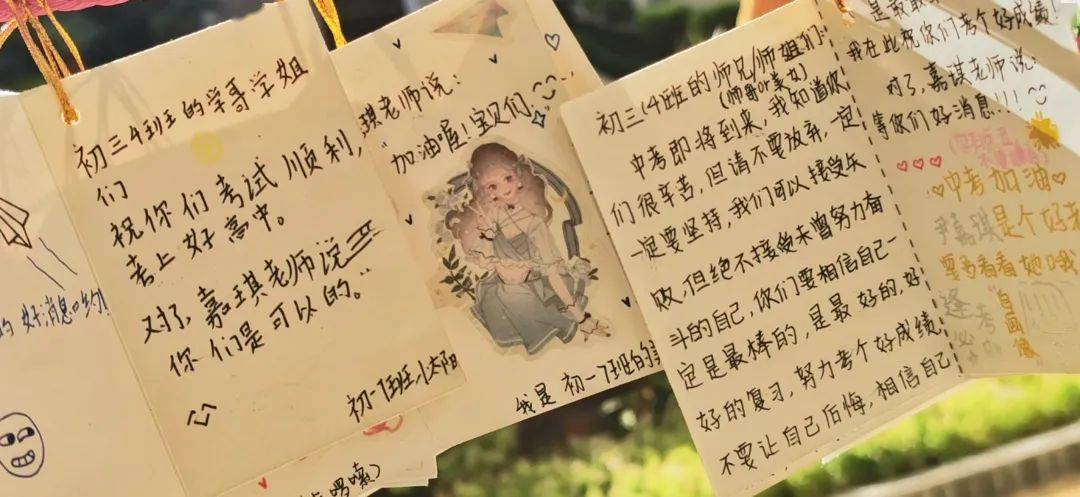 的好消息哟
初三4班的学哥学姐
们
祝你们考试顺利,
考上好高中。
对了,嘉琪老师说
你们是可以的。
初一7班小太阳
琪老师说:
加油喔!宝贝们
我是初一7班的
初三(4班的师兄/师姐们:
(帅哥or美女)
中考即将到来,我知道你
们很辛苦,但请不要放弃,一定
一定要坚持,我们可以接受失
败,但绝不接受未曾努力奋
斗的自己,你们要相信自己一
定是最棒的,是最好的,好
好的复习,努力考个好成绩,
不要让自己后悔,相信自己
是最
我在此祝你们考个好成绩!
对了,嘉琪老师说:
等你们好消息!!!
中考加油
嘉琪是个好老
要多看看她哦
逢考
必
自画像